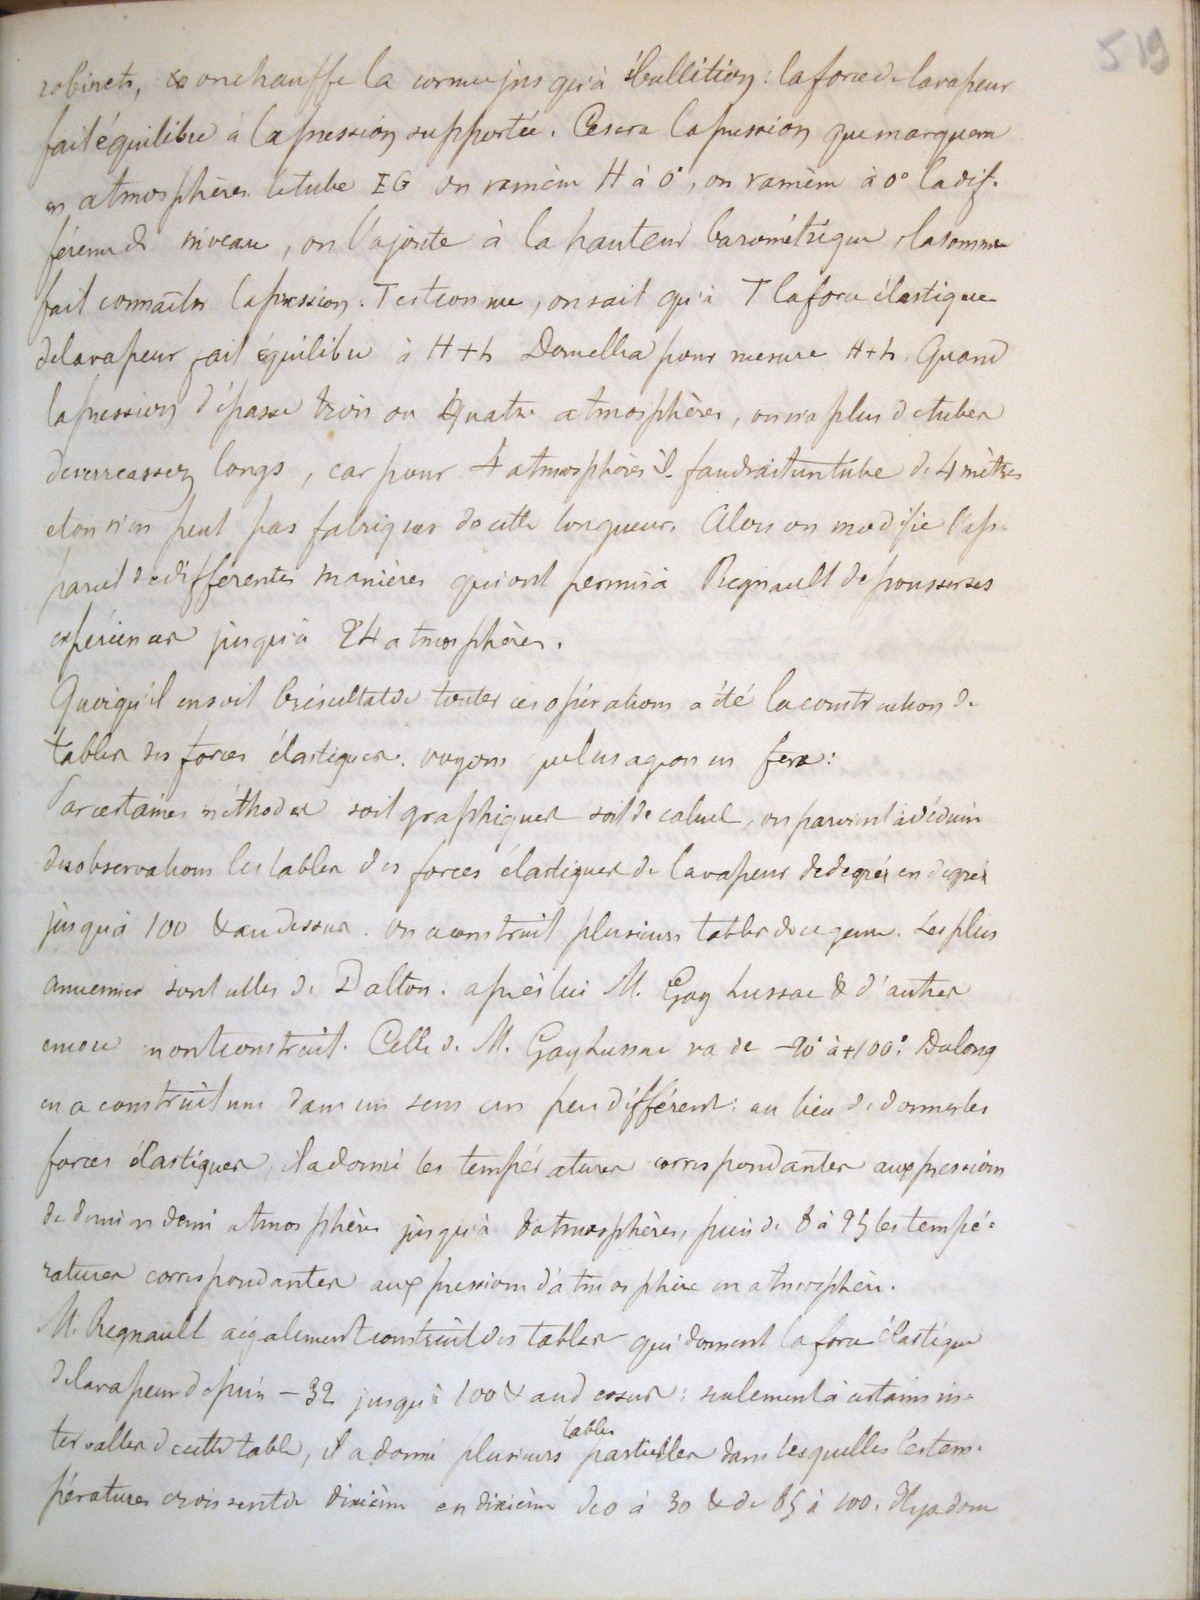 519
robinets, & on chauffe la cornue jusqu'à ébullition : la force de la vapeur
fait équilibre à la pression supportée. Ce sera la pression que marquera
en atmosphères le tube EG on ramène H à 0°, on ramène à 0° la dif-
férence de niveau, on l'ajoute à la hauteur barométrique, la somme
fait connaître la pression. T est connue, on sait qu'à T la force élastique
de la vapeur fait équilibre à H+h Donc elle a pour mesure H+h. Quand
la pression dépasse trois ou quatre atmosphères, on n'a plus de tubes
de verre assez longs, car pour 4 atmosphères il faudrait un tube de 4 mètres
et on n'en peut pas fabriquer de cette longueur. Alors on modifie l'ap-
pareil de différentes manières qui ont permis à Regnault de pousser ses
expériences jusqu'à 24 atmosphères.
Quoiqu'il en soit le résultat de toutes ces opérations a été la construction de
tables des forces élastiques. voyons quel usage on en fera :
Par certaines méthodes soit graphiques soit de calcul, on parvient à déduire
des observations les tables des forces élastiques de la vapeur de degrés en degrés
jusqu'à 100 & au dessus. on a construit plusieurs tables de ce genre. Les plus
anciennes sont celles de Dalton. après lui M. Gay Lussac & d'autres
encore en ont construit. Celle de M. Gay Lussac va de -20° à +100°. Dulong
en a construit une dans un sens un peu différent : au lieu de donner les
forces élastiques, il a donné les températures correspondantes aux pressions
de demi en demi atmosphères jusqu'à 8 atmosphères, puis de 8 à 25 les tempé-
ratures correspondantes aux pressions d'atmosphère en atmosphère.
M. Regnault a également construit des tables qui donnent la force élastique
de la vapeur depuis -32 jusqu'à 100 & au dessus : seulement à certains in-
tervalles de cette table, il a donné plusieurs tables partielles dans lesquelles les tem-
pératures croissent de dixième en dixième de 0 à 30 & de 85 à 100. Il y a donc